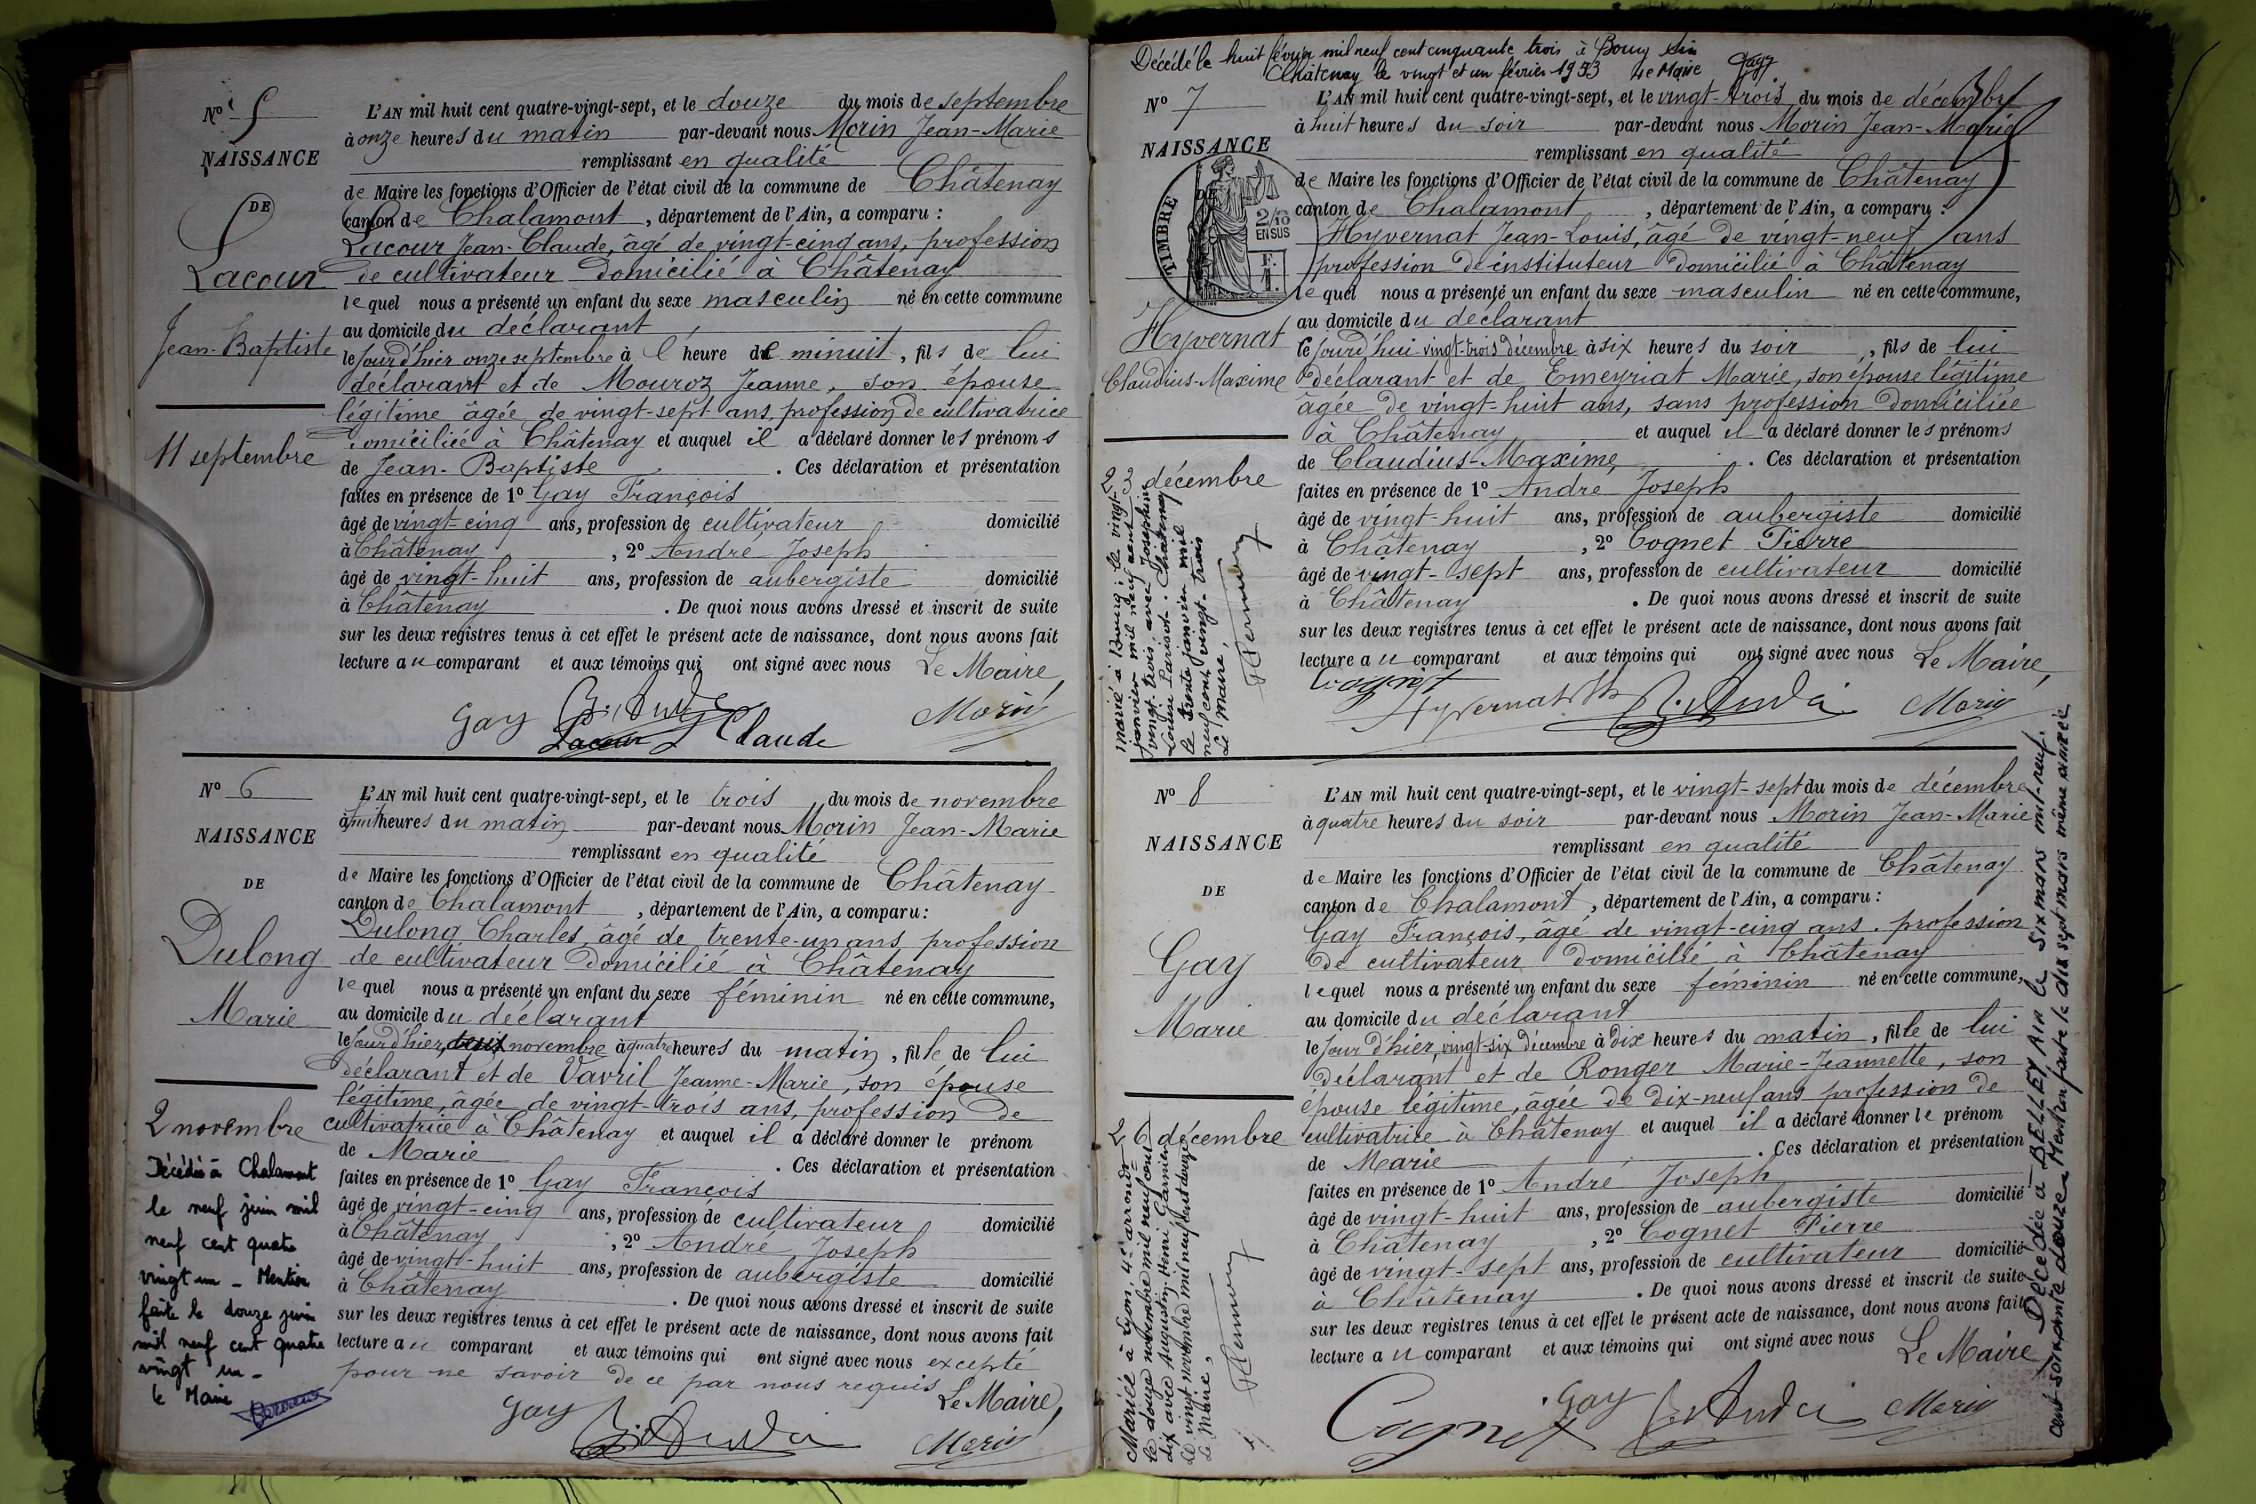 N° 5
NAISSANCE
DE
Lacour
Jean-Baptiste
11 septembre
L'AN mil huit cent quatre-vingt-sept, et le douze du mois de septembre
à onze heures du matin par-devant nous Morin Jean-Marie
remplissant en qualité
de Maire les fonctions d'Officier de l'état civil de la commune de Châtenay
canton de Chalamont, département de l'Ain, a comparu :
Lacour Jean-Claude, âgé de vingt-cinq ans, profession
de cultivateur domicilié à Châtenay
lequel nous a présenté un enfant du sexe masculin né en cette commune
au domicile du déclarant
le jour d'hier onze septembre à l'heure de minuit, fils de lui
déclarant et de Mouroz Jeanne, son épouse
légitime âgée de vingt-sept ans, profession de cultivatrice
domiciliée à Châtenay et auquel il a déclaré donner les prénoms
de Jean-Baptiste . Ces déclaration et présentation
faites en présence de 1° Gay François
âgé de vingt-cinq ans, profession de cultivateur domicilié
à Châtenay, 2° André Joseph
âgé de vingt-huit ans, profession de aubergiste domicilié
à Châtenay . De quoi nous avons dressé et inscrit de suite
sur les deux registres tenus à cet effet le présent acte de naissance, dont nous avons fait
lecture au comparant et aux témoins qui ont signé avec nous Le Maire,
Gay Lacour Claude Morin
N° 6
NAISSANCE
DE
Dulong
Marie
2 novembre
Décédée à Chalamont
le neuf juin mil
neuf cent quatre
vingt un - Mention
faite le douze juin
mil neuf cent quatre
vingt un -
le Maire
L'AN mil huit cent quatre-vingt-sept, et le trois du mois de novembre
à huit heures du matin par-devant nous Morin Jean-Marie
remplissant en qualité
de Maire les fonctions d'Officier de l'état civil de la commune de Châtenay
canton de Chalamont, département de l'Ain, a comparu :
Dulong Charles, âgé de trente-un ans, profession
de cultivateur domicilié à Châtenay
lequel nous a présenté un enfant du sexe féminin né en cette commune,
au domicile du déclarant
le jour d'hier, deux novembre à quatre heures du matin, fille de lui
déclarant et de Vavril Jeanne-Marie, son épouse
légitime, âgée de vingt-trois ans, profession de
cultivatrice à Châtenay et auquel il a déclaré donner le prénom
de Marie . Ces déclaration et présentation
faites en présence de 1° Gay François
âgé de vingt-cinq ans, profession de cultivateur domicilié
à Châtenay, 2° André Joseph
âgé de vingt-huit ans, profession de aubergiste domicilié
à Châtenay . De quoi nous avons dressé et inscrit de suite
sur les deux registres tenus à cet effet le présent acte de naissance, dont nous avons fait
lecture au comparant et aux témoins qui ont signé avec nous excepté
pour ne savoir de ce par nous requis Le Maire,
Gay Morin
Décédé le huit février mil neuf cent cinquante trois à Bourg Ain
Châtenay le vingt et un février 1953 Le Maire Gay
N° 7
NAISSANCE
DE
TIMBRE
2/10
EN SUS
F.
1.
Hyvernat
Claudius-Maxime
23 décembre
Marié à Bourg, le vingt-
janvier mil neuf cent
vingt trois, avec Joséphine
Louise Parisot. Châtenay
le trente janvier mil
neuf cent vingt-trois
Le Maire,
L'AN mil huit cent quatre-vingt-sept, et le vingt-trois du mois de décembre
à huit heures du soir par-devant nous Morin Jean-Marie
remplissant en qualité
de Maire les fonctions d'Officier de l'état civil de la commune de Châtenay
canton de Chalamont, département de l'Ain, a comparu :
Hyvernat Jean-Louis, âgé de vingt-neuf ans
profession de instituteur domicilié à Châtenay
lequel nous a présenté un enfant du sexe masculin né en cette commune,
au domicile du déclarant
le jour d'hui vingt-trois décembre à six heures du soir, fils de lui
déclarant et de Emeyriat Marie, son épouse légitime
âgée de vingt-huit ans, sans profession domiciliée
à Châtenay et auquel il a déclaré donner les prénoms
de Claudius-Maxime . Ces déclaration et présentation
faites en présence de 1° André Joseph
âgé de vingt-huit ans, profession de aubergiste domicilié
à Châtenay, 2° Cognet Pierre
âgé de vingt-sept ans, profession de cultivateur domicilié
à Châtenay . De quoi nous avons dressé et inscrit de suite
sur les deux registres tenus à cet effet le présent acte de naissance, dont nous avons fait
lecture au comparant et aux témoins qui ont signé avec nous Le Maire,
Cognet
Hyvernat Morin
N° 8
NAISSANCE
DE
Gay
Marie
26 décembre
Mariée à Lyon, 4e arrondt
le douze novembre mil neuf cent
dix avec Augustin Henri Garnier
Le vingt novembre mil neuf cent douze
Le Maire,
L'AN mil huit cent quatre-vingt-sept, et le vingt-sept du mois de décembre
à quatre heures du soir par-devant nous Morin Jean-Marie
remplissant en qualité
de Maire les fonctions d'Officier de l'état civil de la commune de Châtenay
canton de Chalamont, département de l'Ain, a comparu :
Gay François, âgé de vingt-cinq ans, profession
de cultivateur domicilié à Châtenay
lequel nous a présenté un enfant du sexe féminin né en cette commune,
au domicile du déclarant
le jour d'hier, vingt-six décembre à dix heures du matin, fille de lui
déclarant et de Ronger Marie-Jeannette, son
épouse légitime, âgée de dix-neuf ans profession de
cultivatrice à Châtenay et auquel il a déclaré donner le prénom
de Marie . Ces déclaration et présentation
faites en présence de 1° André Joseph
âgé de vingt-huit ans, profession de aubergiste domicilié
à Châtenay, 2° Cognet Pierre
âgé de vingt-sept ans, profession de cultivateur domicilié
à Châtenay . De quoi nous avons dressé et inscrit de suite
sur les deux registres tenus à cet effet le présent acte de naissance, dont nous avons fait
lecture au comparant et aux témoins qui ont signé avec nous Le Maire
Cognet Gay Morin
Décédée à BELLEY Ain le six mars mil-neuf-
cent soixante douze Mention faite le dix sept mars même année